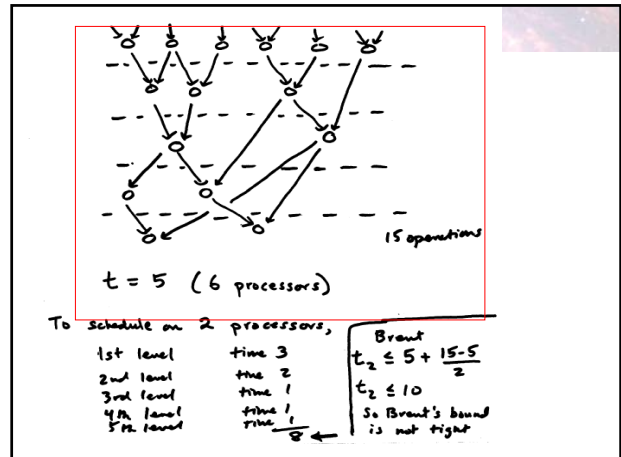 15 operations
t = 5 (6 processors)
To schedule on 2 processors,
1st level time 3
2nd level time 2
3rd level time 1
4th level time 1
5th level time 1
8 ←
Brent
t₂ ≤ 5 + (15-5)/2
t₂ ≤ 10
So Brent's bound
is not tight